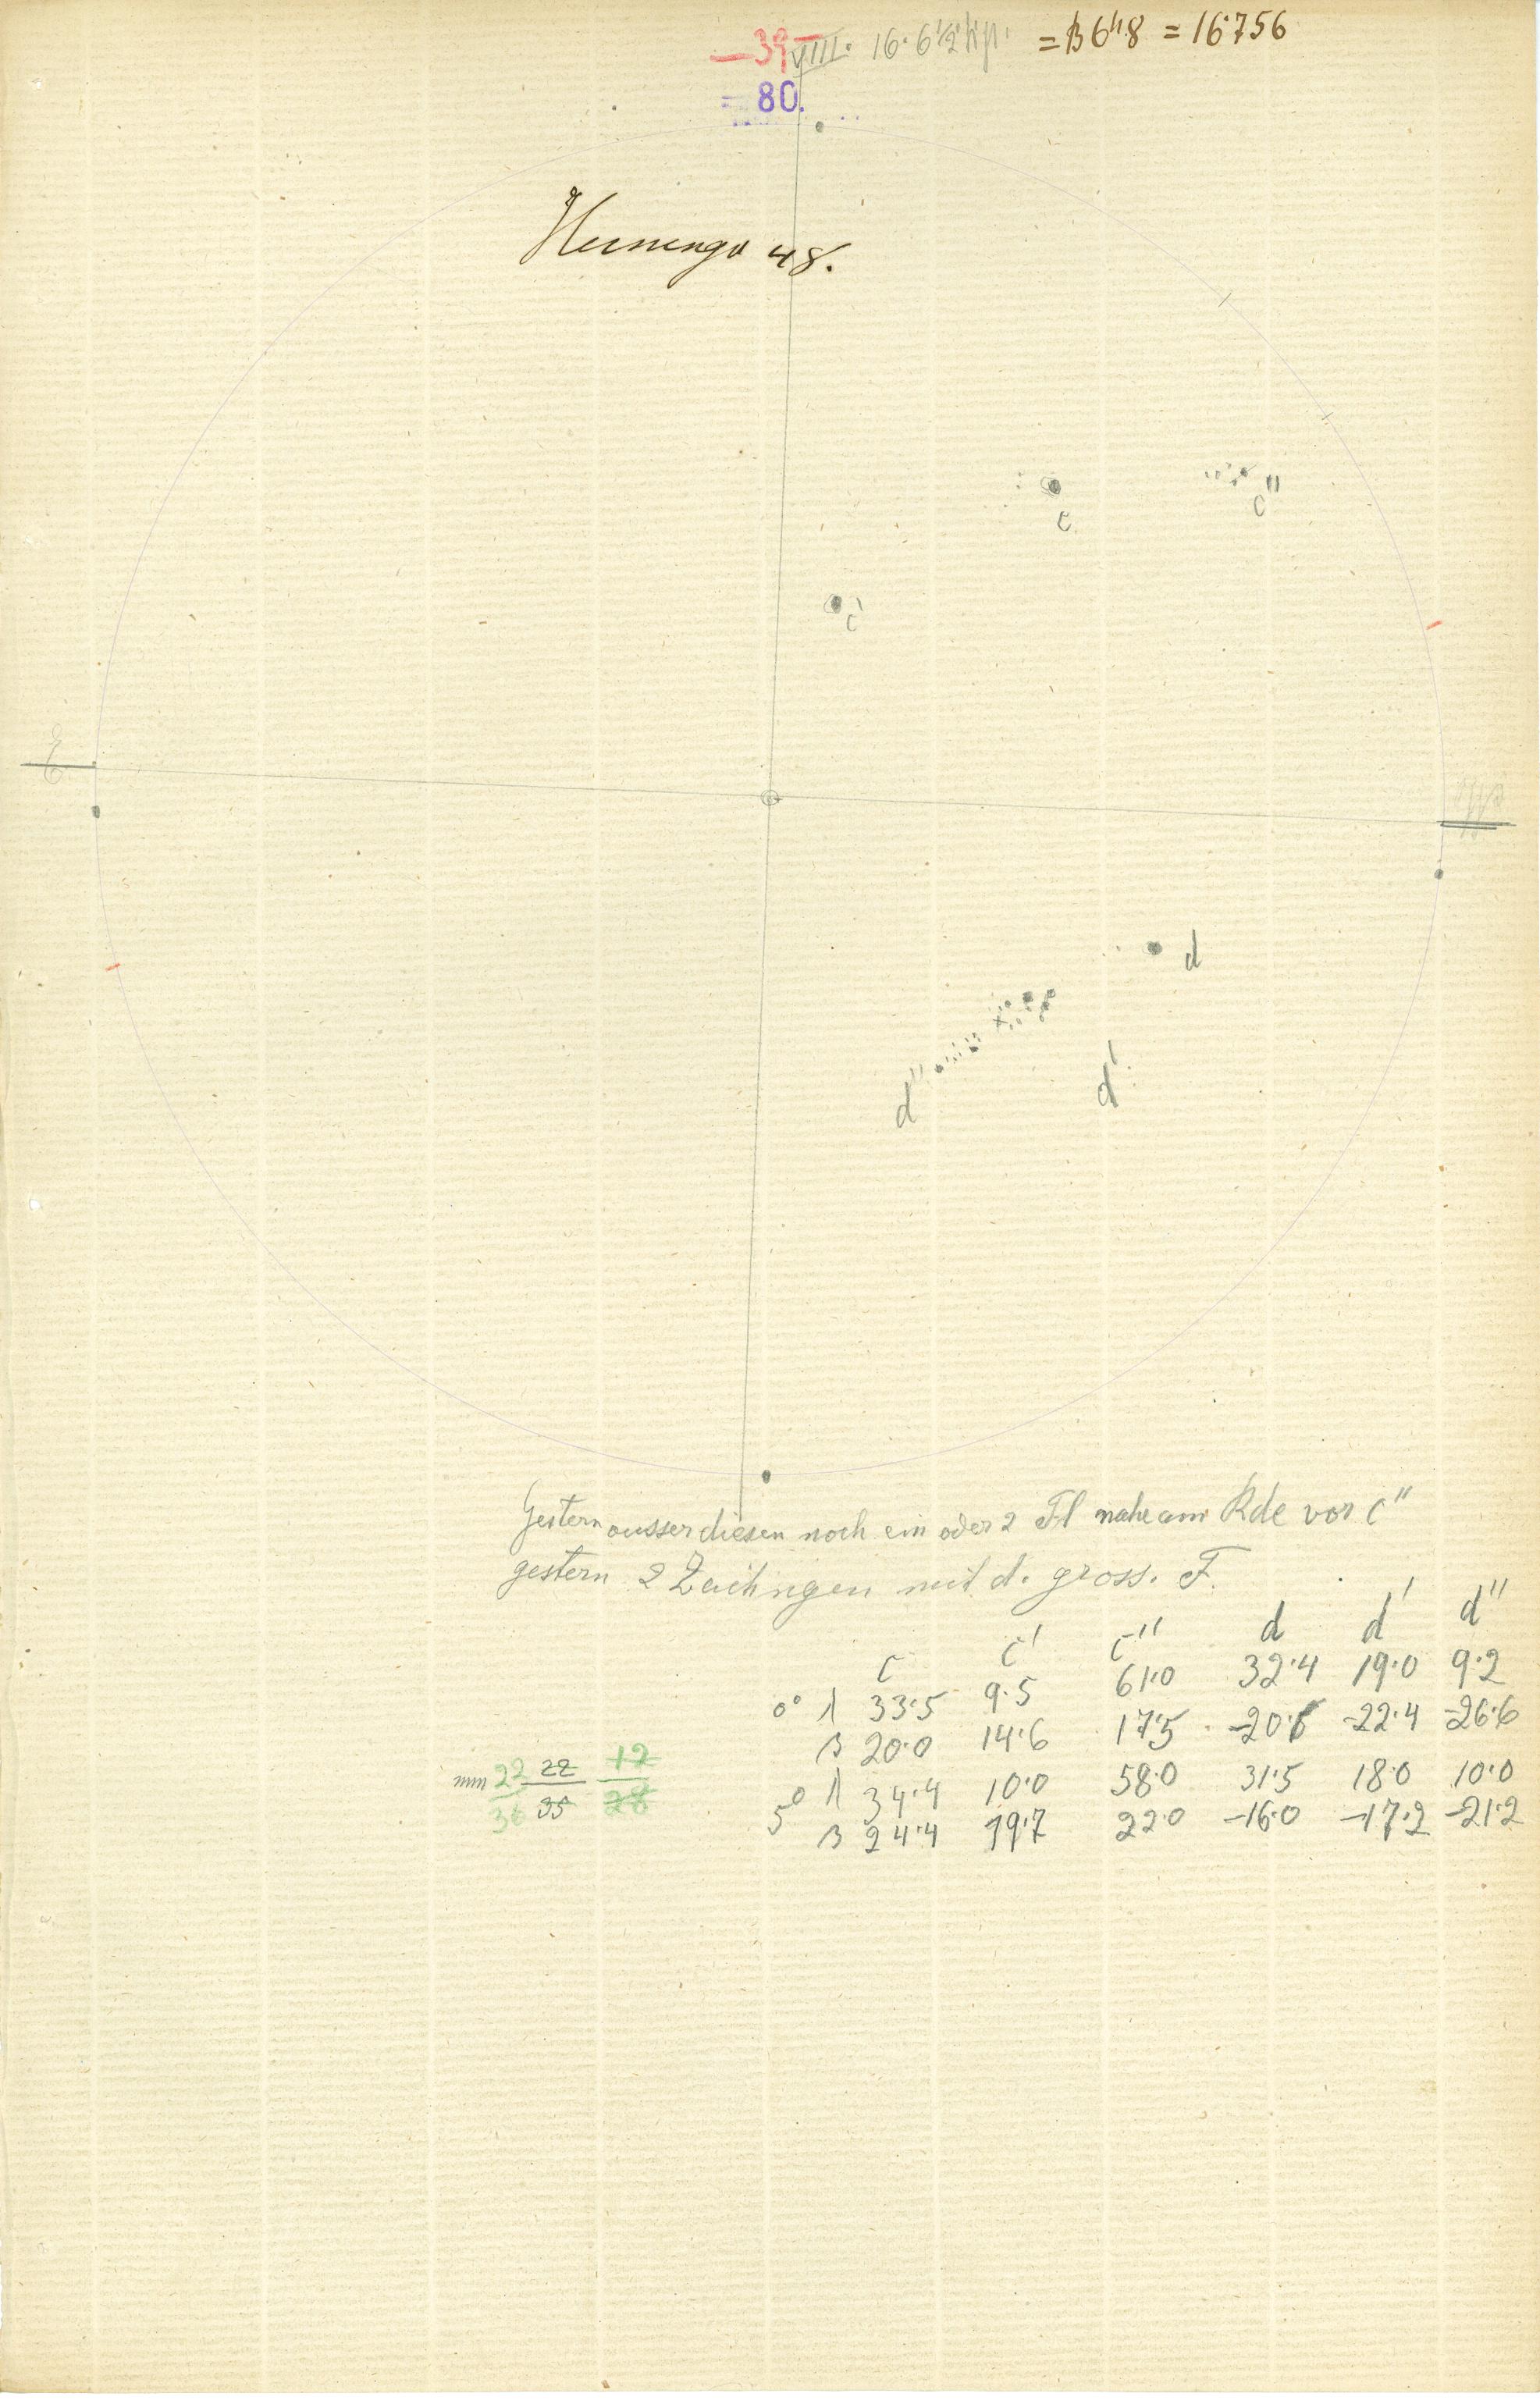 —39—
VIII. 16. 6½ = B 6h.8 = 16.756
80.
48.
c
c''
c'
d
d'
d''
Gestern ausser diesen noch ein oder 2 Fl nahe am Rde vor c''
gestern 2 Zeichngen mit d. gross. F.
c c' c'' d d' d''
0° λ 33.5 9.5 61.0 32.4 19.0 9.2
β 20.0 14.6 17.5 -22.4 -26.6
5° λ 34.4 10.0 58.0 31.5 18.0 10.0
β 24.4 19.7 22.0 -16.0 -17.2 -21.2
22 22 12
36 35 28